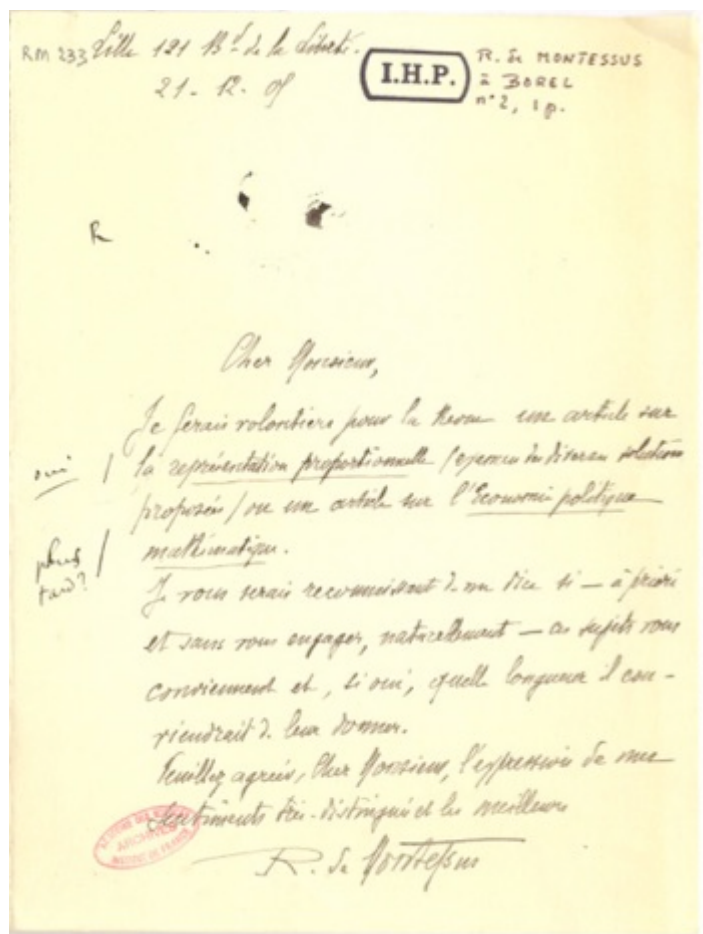 RM 233 Lille 121 Bd de la Liberté.
21-12-05
I.H.P.
R. de MONTESSUS
à BOREL
n°2, 1p.
R
Cher Monsieur,
Je ferais volontiers pour la Revue une article sur
oui / la représentation proportionnelle (examen des diverses solutions
proposées) ou un article sur l'Economie politique
plus tard? / mathématique.
Je vous serais reconnaissant de me dire si — à priori
et sans vous engager, naturellement — ces sujets vous
conviennent et, si oui, quelle longueur il con-
viendrait de leur donner.
Veuillez agréer, Cher Monsieur, l'expression de mes
sentiments très-distingués et les meilleurs
R. de Montessus
ARCHIVES
INSTITUT DE FRANCE